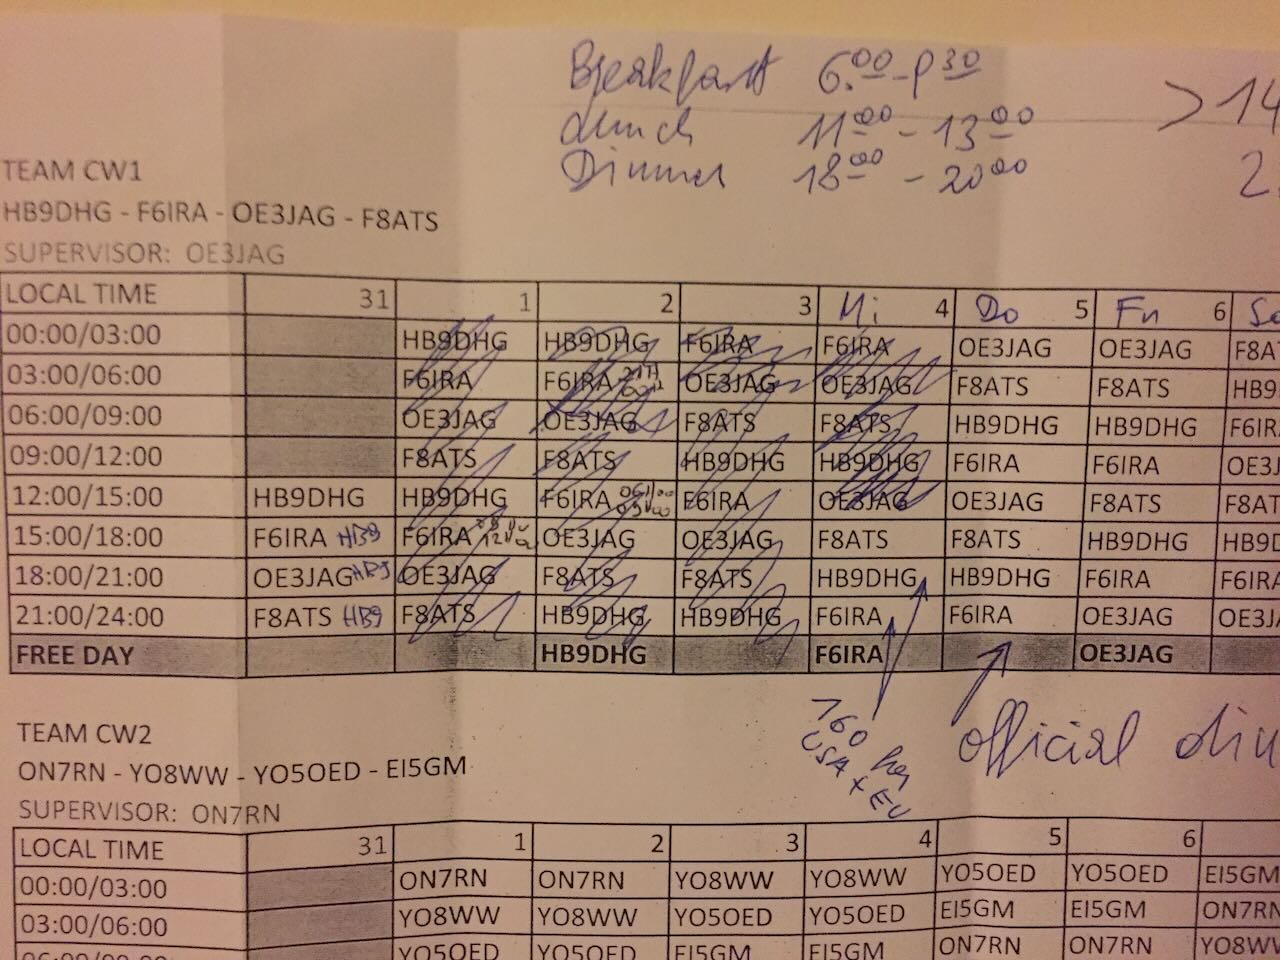 Breakfast 6.00 - 830
Lunch 1100 - 1300 > 14
Dinner 1800 - 2000 2
TEAM CW1
HB9DHG - F6IRA - OE3JAG - F8ATS
SUPERVISOR: OE3JAG
LOCAL TIME 31 1 2 3 Mi 4 Do 5 Fr 6 Sa
00:00/03:00 HB9DHG HB9DHG F6IRA F6IRA OE3JAG OE3JAG F8A
03:00/06:00 F6IRA F6IRA OE3JAG OE3JAG F8ATS F8ATS HB9
06:00/09:00 OE3JAG OE3JAG F8ATS F8ATS HB9DHG HB9DHG F6IR
09:00/12:00 F8ATS F8ATS HB9DHG HB9DHG F6IRA F6IRA OE3
12:00/15:00 HB9DHG HB9DHG F6IRA F6IRA OE3JAG OE3JAG F8ATS F8AT
15:00/18:00 F6IRA HB9 F6IRA OE3JAG OE3JAG F8ATS F8ATS HB9DHG HB9D
18:00/21:00 OE3JAG OE3JAG F8ATS F8ATS HB9DHG HB9DHG F6IRA F6IR
21:00/24:00 F8ATS HB9 F8ATS HB9DHG HB9DHG F6IRA F6IRA OE3JAG OE3J
FREE DAY HB9DHG F6IRA OE3JAG
160
USA + EU
official din
TEAM CW2
ON7RN - YO8WW - YO5OED - EI5GM
SUPERVISOR: ON7RN
LOCAL TIME 31 1 2 3 4 5 6
00:00/03:00 ON7RN ON7RN YO8WW YO8WW YO5OED YO5OED EI5GM
03:00/06:00 YO8WW YO8WW YO5OED YO5OED EI5GM EI5GM ON7RN
06:00/09:00 YO5OED YO5OED EI5GM EI5GM ON7RN ON7RN YO8W